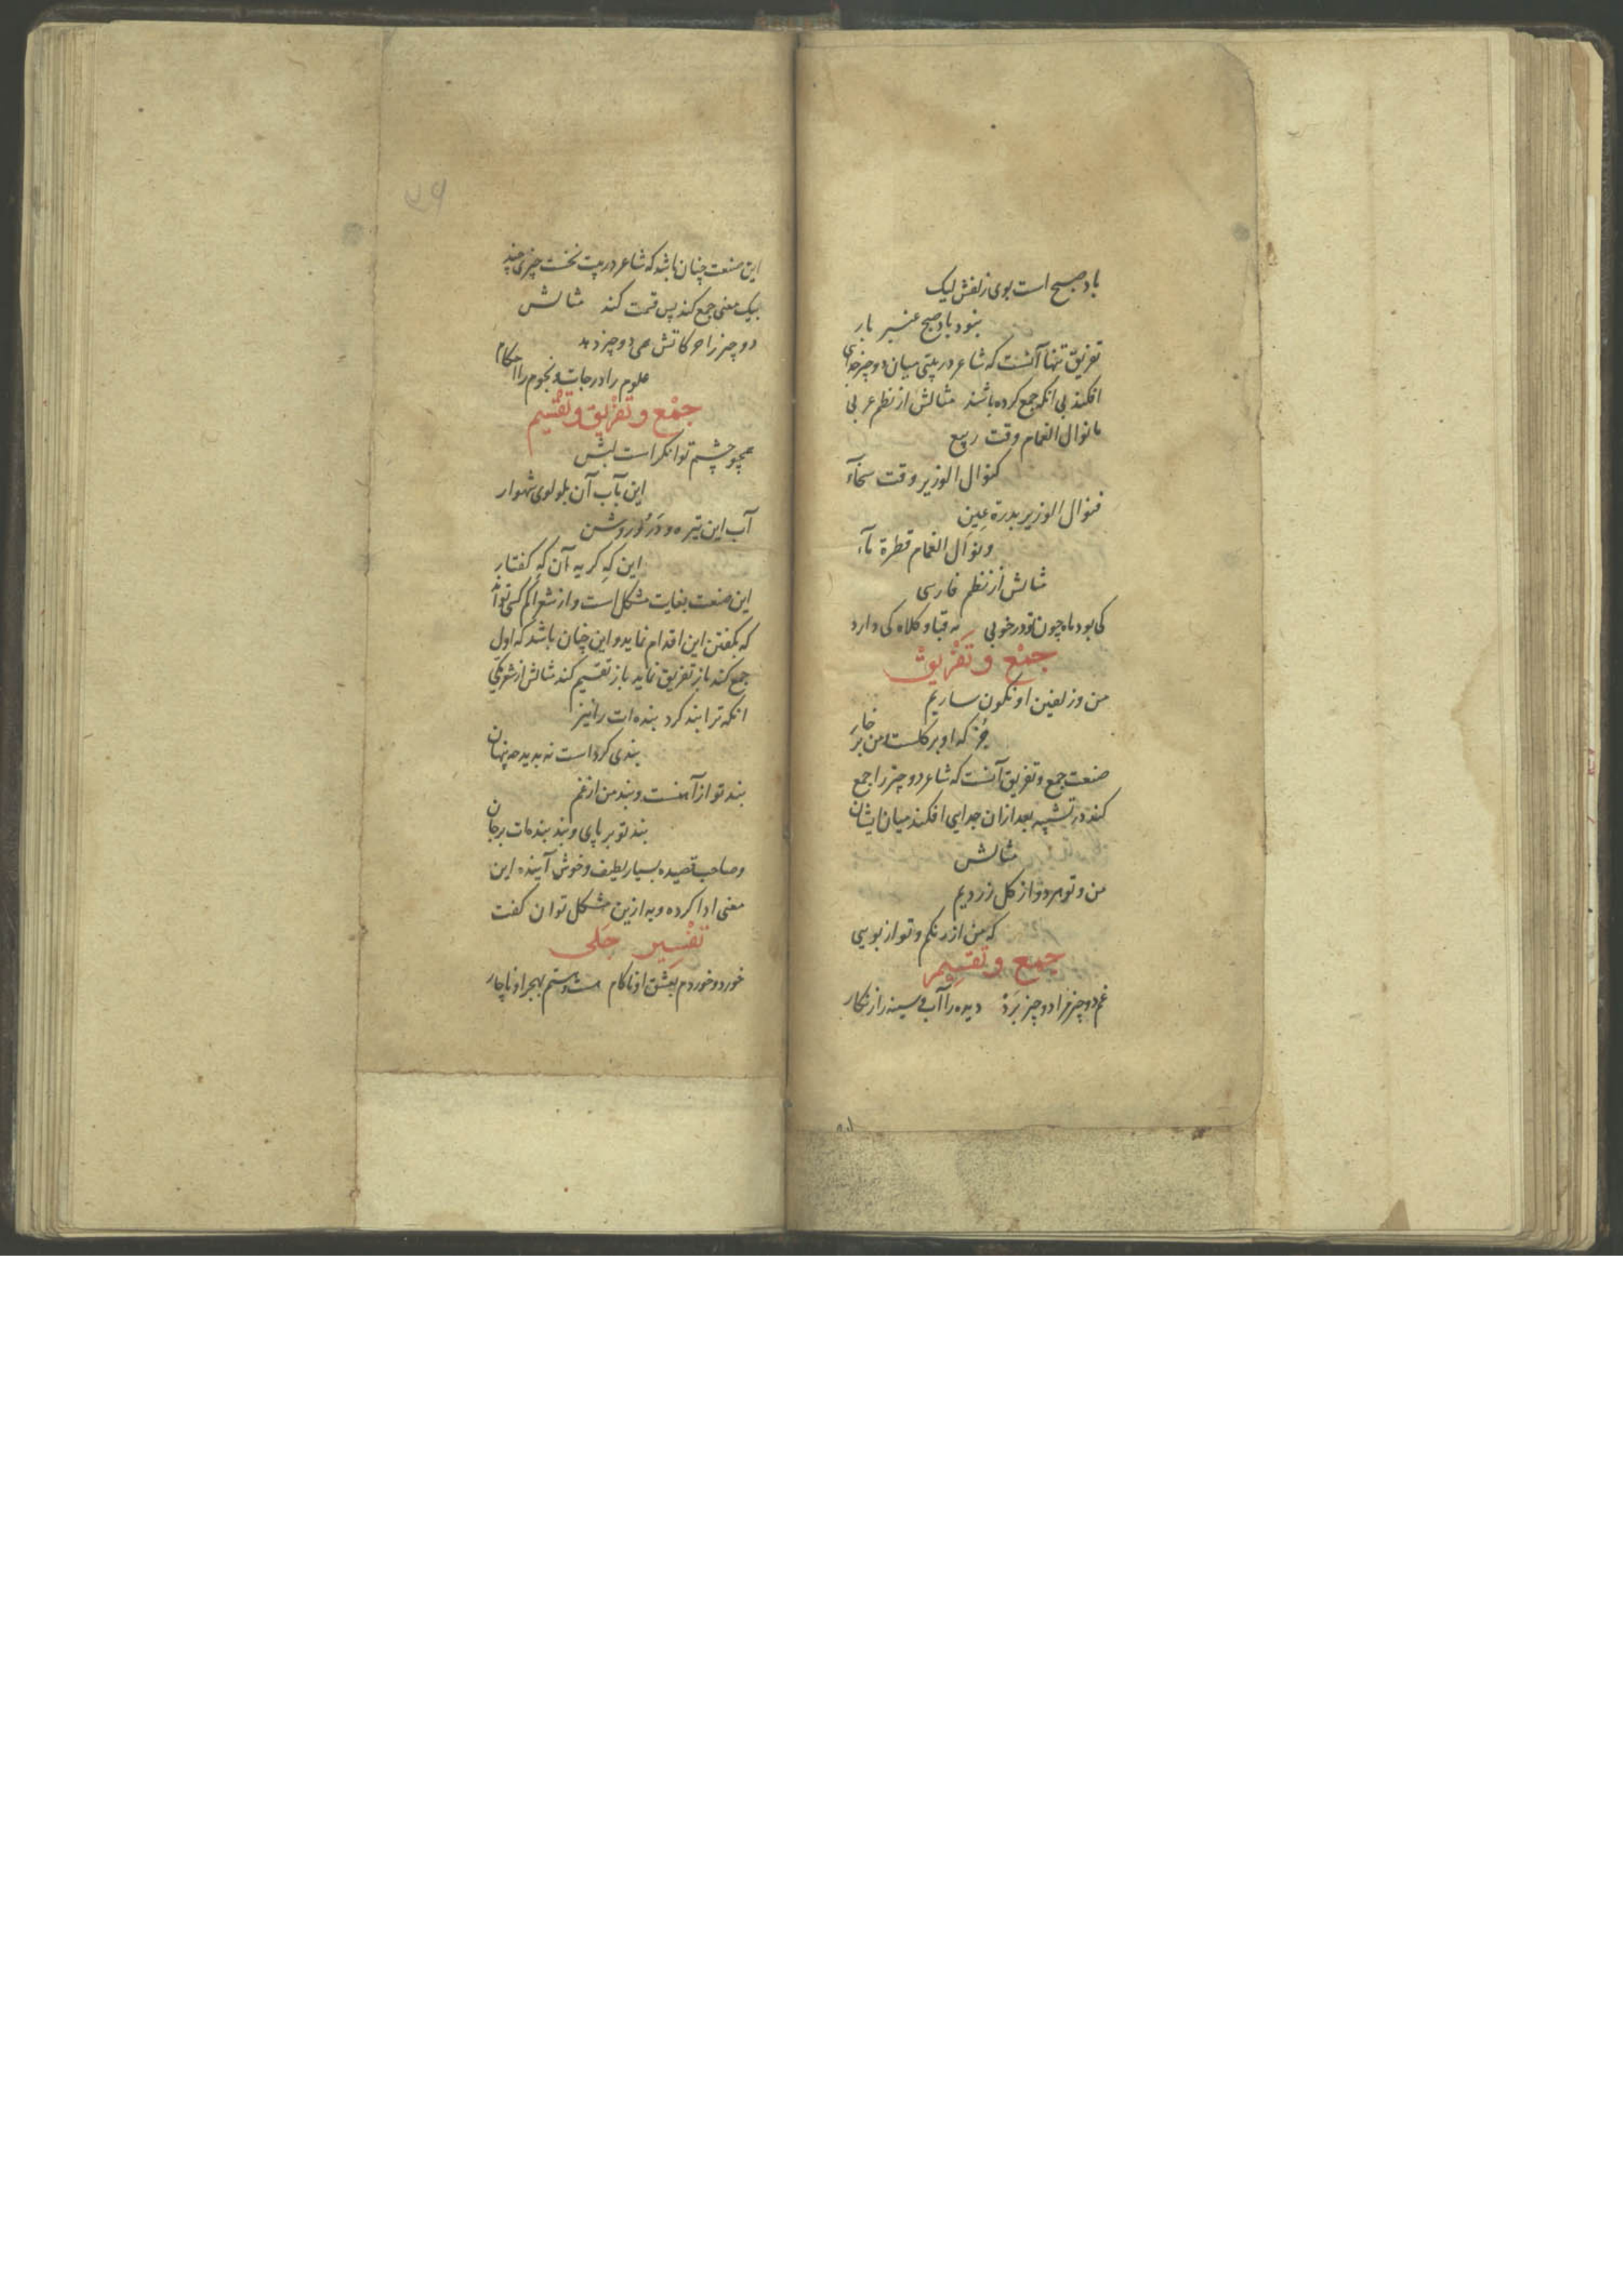 باد صبح است بوی زلفش لیک
نبود باد صبح عنبر بار
تفریق تنها آنست که شاعر در بیتی میان دو چیز جدای
افکند بی انکه جمع کرده باشد مثالش از نظم عربی
ما نوال الغمام وقت ربیع
کنوال الوزیر وقت سخآء
فنوال الوزیر بدرة عین
ونوال الغمام قطرة مآء
مثالش از نظم فارسی
کی بود ماه چون تو در خوبی نه قبا و کلاه کی دارد
جمع و تفریق
من و زلفین او نکون ساریم
جز که او بر کلست من بر خار
صنعت جمع و تفریق آنست که شاعر دو چیز را جمع
کند در تشبیه بعد ازان جدایی افکند میان ایشان
مثالش
من و تو هر دو از کل زردیم
که من از رنکم و تو از بویی
جمع و تقسیم
غم دو چیز مرا دو چیز برد دیده را آب و سینه را زنکار
۵۹
این صنعت چنان باشد که شاعر در بیت نخست چیزی چند
بیک معنی جمع کند پس قسمت کند مثالش
دو چیز را حرکاتش می دو چیز دهد
علوم را درجات و نجوم را احکام
جمع و تفریق و تقسیم
همچو چشمم توانکر است لبش
این بآب آن بلولوی شهوار
آب این تیره و در او روشن
این که کریه آن که کفتار
این صنعت بغایت مشکل است و از شعرا کم کسی تواند
که بکفتن این اقدام نماید و این چنان باشد که اول
جمع کند باز تفریق نماید باز تقسیم کند مثالش از شعر
انکه ترا بند کرد بنده ات را نیز
بندی کرد است نه بدید چه پنهان
بند تو از آهنست و بند من از غم
بند تو بر پای و بند بنده ات بر جان
و صاحب قصیده بسیار لطیف و خوش آینده این
معنی ادا کرده و به ازین مشکل توان کفت
تفسیر جلی
خورد و خوردم بعشق او ناکام هست و هستم بهجر او ناچار